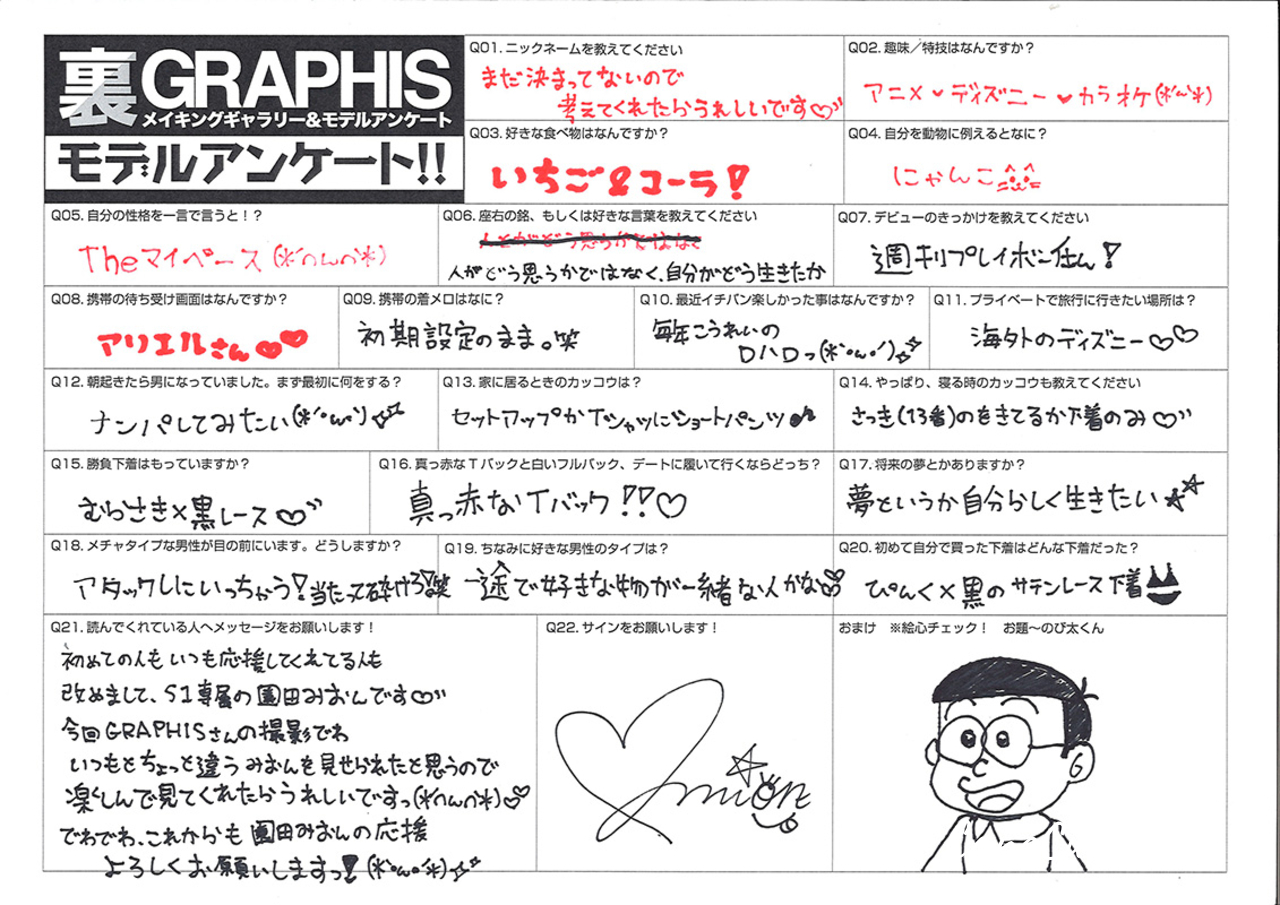 裏GRAPHIS
メイキングギャラリー&モデルアンケート
モデルアンケート!!
Q01. ニックネームを教えてください
まだ決まってないので
考えてくれたらうれしいです♡
Q02. 趣味／特技はなんですか？
アニメ♥ディズニー♥カラオケ(*´~`*)
Q03. 好きな食べ物はなんですか？
いちご&コーラ!
Q04. 自分を動物に例えるとなに？
にゃんこ
Q05. 自分の性格を一言で言うと！？
Theマイペース(*´∩ω∩`*)
Q06. 座右の銘、もしくは好きな言葉を教えてください
人がどう思うかではなく、自分がどう生きたか
Q07. デビューのきっかけを教えてください
週刊プレイボーイさん!
Q08. 携帯の待ち受け画面はなんですか？
アリエルさん♥♥
Q09. 携帯の着メロはなに？
初期設定のまま。笑
Q10. 最近イチバン楽しかった事はなんですか？
毎年こうれいの
Dハロっ(*´ω`*)
Q11. プライベートで旅行に行きたい場所は？
海外のディズニー♡♡
Q12. 朝起きたら男になっていました。まず最初に何をする？
ナンパしてみたい(*´ω`)
Q13. 家に居るときのカッコウは？
セットアップかTシャツにショートパンツ♪
Q14. やっぱり、寝る時のカッコウも教えてください
さっき(13番)のをきてるか下着のみ♡
Q15. 勝負下着はもっていますか？
むらさき×黒レース♡
Q16. 真っ赤なTバックと白いフルバック、デートに履いて行くならどっち？
真っ赤なTバック!!♡
Q17. 将来の夢とかありますか？
夢というか自分らしく生きたい★☆
Q18. メチャタイプな男性が目の前にいます。どうしますか？
アタックしにいっちゃう!当たって砕けろ!笑
Q19. ちなみに好きな男性のタイプは？
一途で好きな物が一緒な人がな♡
Q20. 初めて自分で買った下着はどんな下着だった？
ぴんく×黒のサテンレース下着
Q21. 読んでくれている人へメッセージをお願いします！
初めての人もいつも応援してくれてる人も
改めまして、S1専属の園田みおんです♡
今回GRAPHISさんの撮影でわ
いつもとちょっと違うみおんを見せられたと思うので
楽しんで見てくれたらうれしいですっ(*´∩ω∩`*)♡
でわでわ、これからも園田みおんの応援
よろしくお願いしますっ!(*´ω`*)
Q22. サインをお願いします！
mion
おまけ　※絵心チェック！　お題〜のび太くん